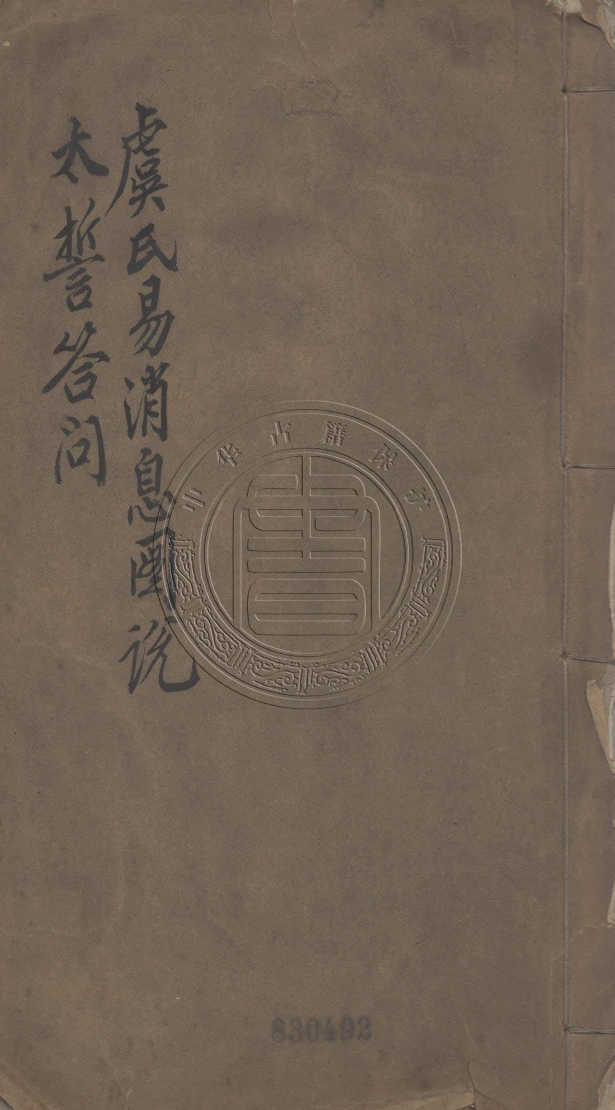 虞氏易消息圖説
太誓答问
中华古籍保护
830492